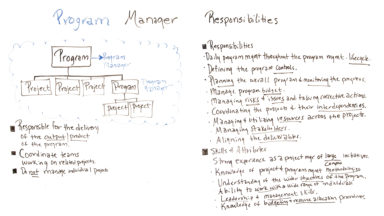 Program Manager
Program
Program Manager
Project Project Project Program
Project Project
Responsible for the delivery
of the output/product
of the program
Coordinate teams
working on related projects
Do not manage individual projects
Responsibilities
Responsibilities
Daily program mgmt throughout the program mgmt. lifecycle
Defining the program controls.
Planning the overall program & monitoring the progress
Manage program budget
Managing risks & issues and taking corrective actions
Coordinating the projects & their interdependencies.
Managing & utilizing resources across the projects.
Managing stakeholders.
Aligning the deliverables.
Skills & Attributes
Strong experience as a project mgr of large initiatives
Knowledge of project & program mgmt methodologies
Understanding of the wider objectives of the program,
Ability to work w/ a wide range of individuals
Leadership & management skills.
Knowledge of budgeting & resource allocation procedures